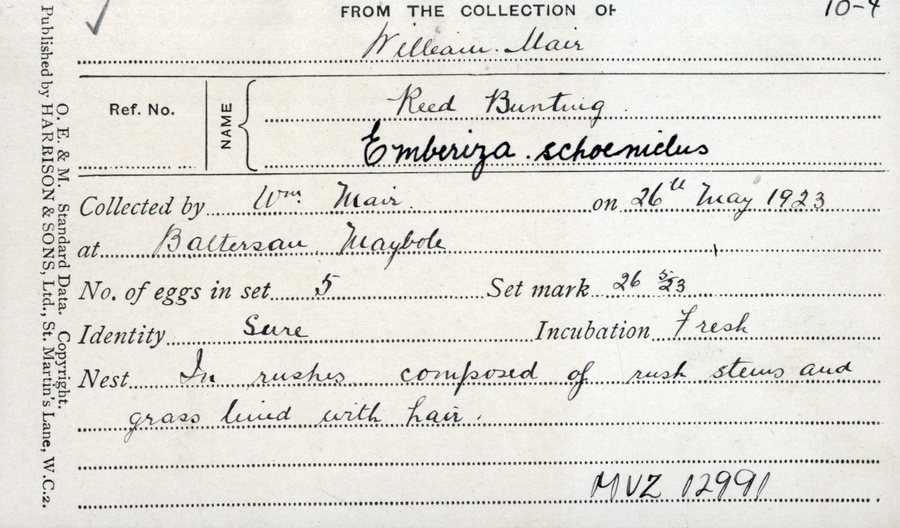 FROM THE COLLECTION OF
10-4
William Mair
Ref. No.
NAME
Reed Bunting
Emberiza schoeniclus
Collected by Wm. Mair. on 26th May 1923
at Baltersan Maybole
No. of eggs in set 5 Set mark 26 5/23
Identity Sure Incubation Fresh
Nest In rushes composed of rush stems and
grass lined with hair.
MVZ 12991
O. E. & M. Standard Data. Copyright.
Published by HARRISON & SONS, Ltd., St. Martin's Lane, W.C.2.